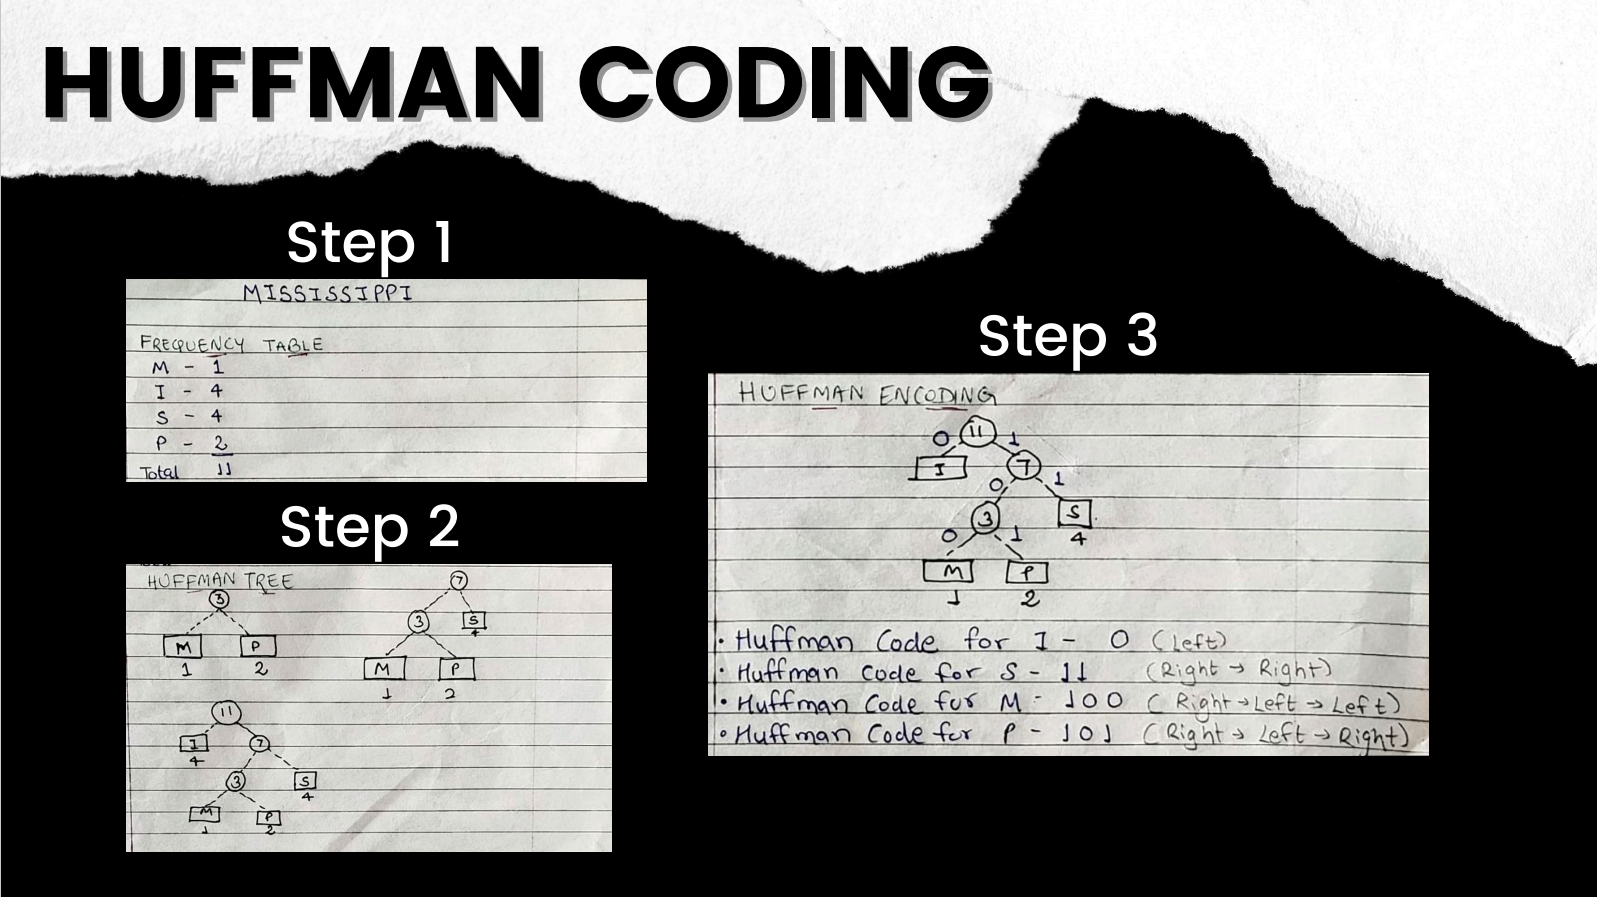 HUFFMAN CODING
Step 1
MISSISSIPPI
FREQUENCY TABLE
M - 1
I - 4
S - 4
P - 2
Total 11
Step 2
HUFFMAN TREE
3
M P
1 2
7
3 S
4
M P
1 2
11
I 7
4
3 S
4
M P
1 2
Step 3
HUFFMAN ENCODING
0 11 1
I 7
0 1
3 S
0 1 4
M P
1 2
• Huffman Code for I - 0 (Left)
• Huffman Code for S - 11 (Right → Right)
• Huffman Code for M - 100 (Right → Left → Left)
• Huffman Code for P - 101 (Right → Left → Right)